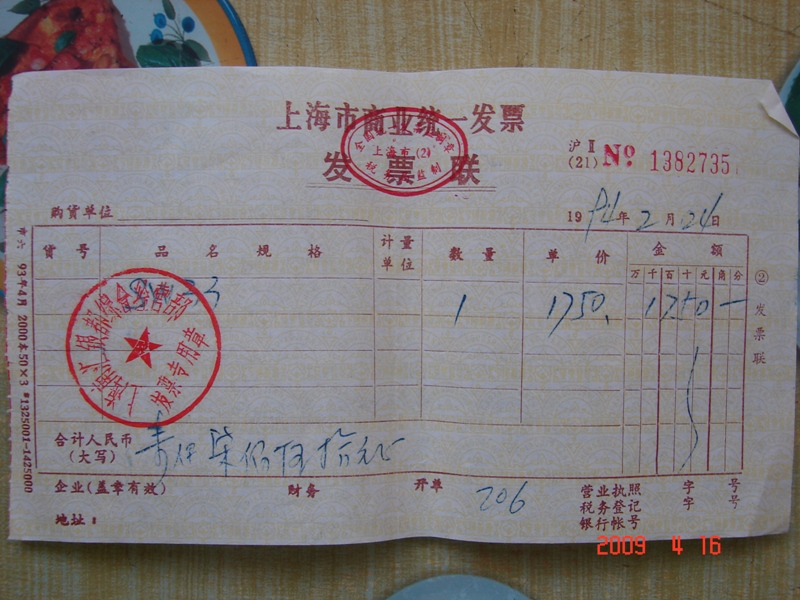 上海市商业统一发票
发票联
上海市(2)
沪Ⅱ
(21) No 1382735
购货单位
1994年2月24日
货号 品名规格 计量单位 数量 单价 金额
万千百十元角分
1 1750. 1750
合计人民币
(大写)
壹仟柒佰伍拾元正
企业(盖章有效) 财务 开单 206
营业执照 字 号
税务登记 字 号
银行帐号
地址:
② 发票联
93年4月 2000本50×3 #1325001-1425000
发票专用章
2009 4 16